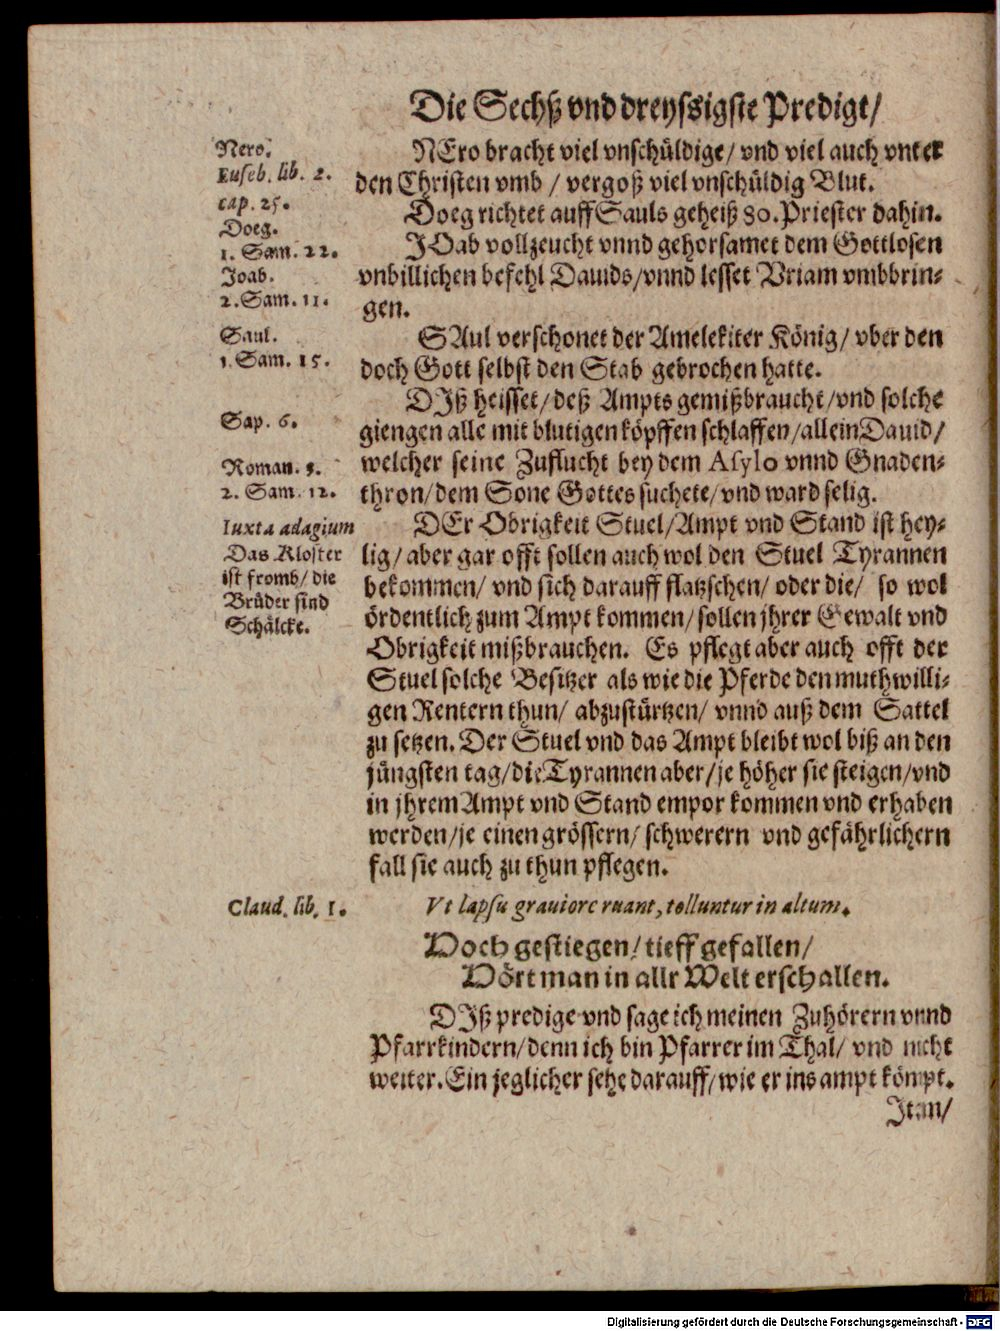 Die Sechß vnd dreyssigste Predigt/
Nero.
Euseb. lib. 2.
cap. 25.
Doeg.
1. Sam. 22.
Joab.
2. Sam. 11.
Saul.
1. Sam. 15.
Sap. 6.
Roman. 5.
2. Sam. 12.
Iuxta adagium
Das Kloster
ist fromb/ die
Brüder sind
Schälcke.
Claud. lib. 1.
NEro bracht viel vnschüldige/ vnd viel auch vnter
den Christen vmb / vergoß viel vnschüldig Blut.
Doeg richtet auff Sauls geheiß 80. Priester dahin.
JOab vollzeucht vnnd gehorsamet dem Gottlosen
vnbillichen befehl Dauids/ vnnd lesset Vriam vmbbrin-
gen.
SAul verschonet der Amelekiter König/ vber den
doch Gott selbst den Stab gebrochen hatte.
DJß heisset/ deß Ampts gemißbraucht/ vnd solche
giengen alle mit blutigen köpffen schlaffen/ allein Dauid/
welcher seine Zuflucht bey dem Asylo vnnd Gnaden-
thron/ dem Sone Gottes suchete/ vnd ward selig.
DEr Obrigkeit Stuel/ Ampt vnd Stand ist hey-
lig/ aber gar offt sollen auch wol den Stuel Tyrannen
bekommen/ vnd sich darauff flatzschen/ oder die/ so wol
ördentlich zum Ampt kommen/ sollen jhrer Gewalt vnd
Obrigkeit mißbrauchen. Es pflegt aber auch offt der
Stuel solche Besitzer als wie die Pferde den muthwilli-
gen Reutern thun/ abzustürtzen/ vnnd auß dem Sattel
zu setzen. Der Stuel vnd das Ampt bleibt wol biß an den
jüngsten tag/ die Tyrannen aber/ je höher sie steigen/ vnd
in jhrem Ampt vnd Stand empor kommen vnd erhaben
werden/ je einen grössern/ schwerern vnd gefährlichern
fall sie auch zu thun pflegen.
Vt lapsu grauiore ruant, tolluntur in altum.
Hoch gestiegen/ tieff gefallen/
Hört man in allr Welt erschallen.
DJß predige vnd sage ich meinen Zuhörern vnnd
Pfarrkindern/ denn ich bin Pfarrer im Thal/ vnd nicht
weiter. Ein jeglicher sehe darauff/ wie er ins ampt kömpt.
Digitalisierung gefördert durch die Deutsche Forschungsgemeinschaft - DFG